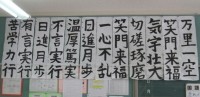 万里一空
笑門来福
気宇壮大
切磋琢磨
笑門来福
一心不乱
日進月歩
温厚篤実
不言実行
日進月歩
有言実行
苦学力行